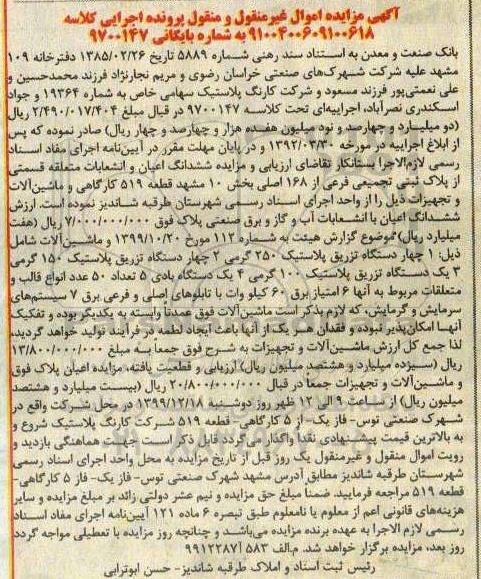 آگهی مزایده اموال غیرمنقول و منقول پرونده اجرایی کلاسه
۹۱۰۰۴۰۰۶۰۹۱۰۰۶۱۸ به شماره بایگانی ۹۷۰۰۱۴۷
بانک صنعت و معدن به استناد سند رهنی شماره ۵۸۸۹ تاریخ ۱۳۸۵/۰۲/۲۶ دفترخانه ۱۰۹
مشهد علیه شرکت شهرک‌های صنعتی خراسان رضوی و مریم نجارنژاد فرزند محمدحسین و
علی نعمتی‌پور فرزند مسعود و شرکت کارنگ پلاستیک سهامی خاص به شماره ۱۹۳۶۴ و جواد
اسکندری نصرآباد، اجراییه‌ای تحت کلاسه ۹۷۰۰۱۴۷ در قبال مبلغ ۲/۴۹۰/۰۱۷/۴۰۴ ریال
(دو میلیارد و چهارصد و نود میلیون هفده هزار و چهارصد و چهار ریال) صادر نموده که پس
از ابلاغ اجراییه در مورخه ۱۳۹۲/۰۳/۳۰ و در پایان مهلت مقرر در آیین‌نامه اجرای مفاد اسناد
رسمی لازم‌الاجرا بستانکار تقاضای ارزیابی و مزایده ششدانگ اعیان و انشعابات متعلقه قسمتی
از پلاک ثبتی تجمیعی فرعی از ۱۶۸ اصلی بخش ۱۰ مشهد قطعه ۵۱۹ کارگاهی و ماشین‌آلات
و تجهیزات ذیل را از واحد اجرای اسناد رسمی شهرستان طرقبه شاندیز نموده است. ارزش
ششدانگ اعیان با انشعابات آب و گاز و برق صنعتی پلاک فوق ۷/۰۰۰/۰۰۰/۰۰۰ ریال (هفت
میلیارد ریال) موضوع گزارش هیئت به شماره ۱۱۲ مورخ ۱۳۹۹/۱۰/۲۰ و ماشین‌آلات شامل
ذیل: ۱ چهار دستگاه تزریق پلاستیک ۲۵۰ گرمی ۲ چهار دستگاه تزریق پلاستیک ۱۵۰ گرمی
۳ یک دستگاه تزریق پلاستیک ۱۰۰ گرمی ۴ یک دستگاه بادی ۵ تعداد ۵۰ عدد انواع قالب و
متعلقات مربوط به آنها ۶ امتیاز برق ۶۰ کیلو وات با تابلوهای اصلی و فرعی برق ۷ سیستم‌های
سرمایش و گرمایش، که لازم بذکر است ماشین‌آلات فوق عمدتاً وابسته به یکدیگر بوده و تفکیک
آنها امکان‌پذیر نبوده و فقدان هر یک از آنها باعث ایجاد لطمه در فرآیند تولید خواهد گردید،
لذا جمع کل ارزش ماشین‌آلات و تجهیزات به شرح فوق جمعاً به مبلغ ۱۳/۸۰۰/۰۰۰/۰۰۰
ریال (سیزده میلیارد و هشتصد میلیون ریال) ارزیابی و قطعیت یافته، مزایده اعیان پلاک فوق
و ماشین‌آلات و تجهیزات جمعاً در قبال ۲۰/۸۰۰/۰۰۰/۰۰۰ ریال (بیست میلیارد و هشتصد
میلیون ریال) از ساعت ۹ الی ۱۲ ظهر روز دوشنبه ۱۳۹۹/۱۲/۱۸ در محل شرکت واقع در
شهرک صنعتی توس- فاز یک- از ۵ کارگاهی- قطعه ۵۱۹ شرکت کارنگ پلاستیک شروع و
به بالاترین قیمت پیشنهادی نقداً واگذار می‌گردد قابل ذکر است جهت هماهنگی بازدید و
رویت اموال منقول و غیرمنقول یک روز قبل از تاریخ مزایده به محل واحد اجرای اسناد رسمی
شهرستان طرقبه شاندیز مطابق آدرس مشهد شهرک صنعتی توس- فاز یک- فاز ۵ کارگاهی-
قطعه ۵۱۹ مراجعه فرمایید. ضمناً مبلغ حق مزایده و نیم عشر دولتی زائد بر مبلغ مزایده و سایر
هزینه‌های قانونی اعم از معلوم یا نامعلوم طبق تبصره ۶ ماده ۱۲۱ آیین‌نامه اجرای مفاد اسناد
رسمی لازم الاجرا به عهده برنده مزایده می‌باشد و چنانچه روز مزایده با تعطیلی مواجه گردد
روز بعد، مزایده برگزار خواهد شد. م.الف ۵۸۳ آ۹۹۱۲۲۸۷
رئیس ثبت اسناد و املاک طرقبه شاندیز- حسن ابوترابی